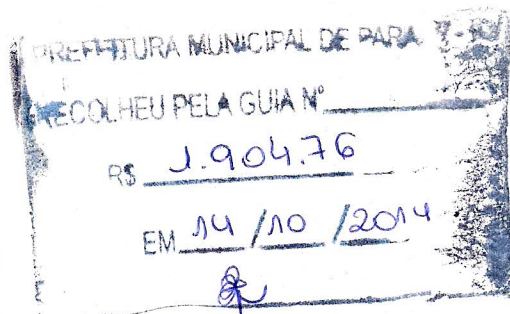 PREFEITURA MUNICIPAL DE PARA
RECOLHEU PELA GUIA Nº
R$ 1.904.76
EM 14/10/2014